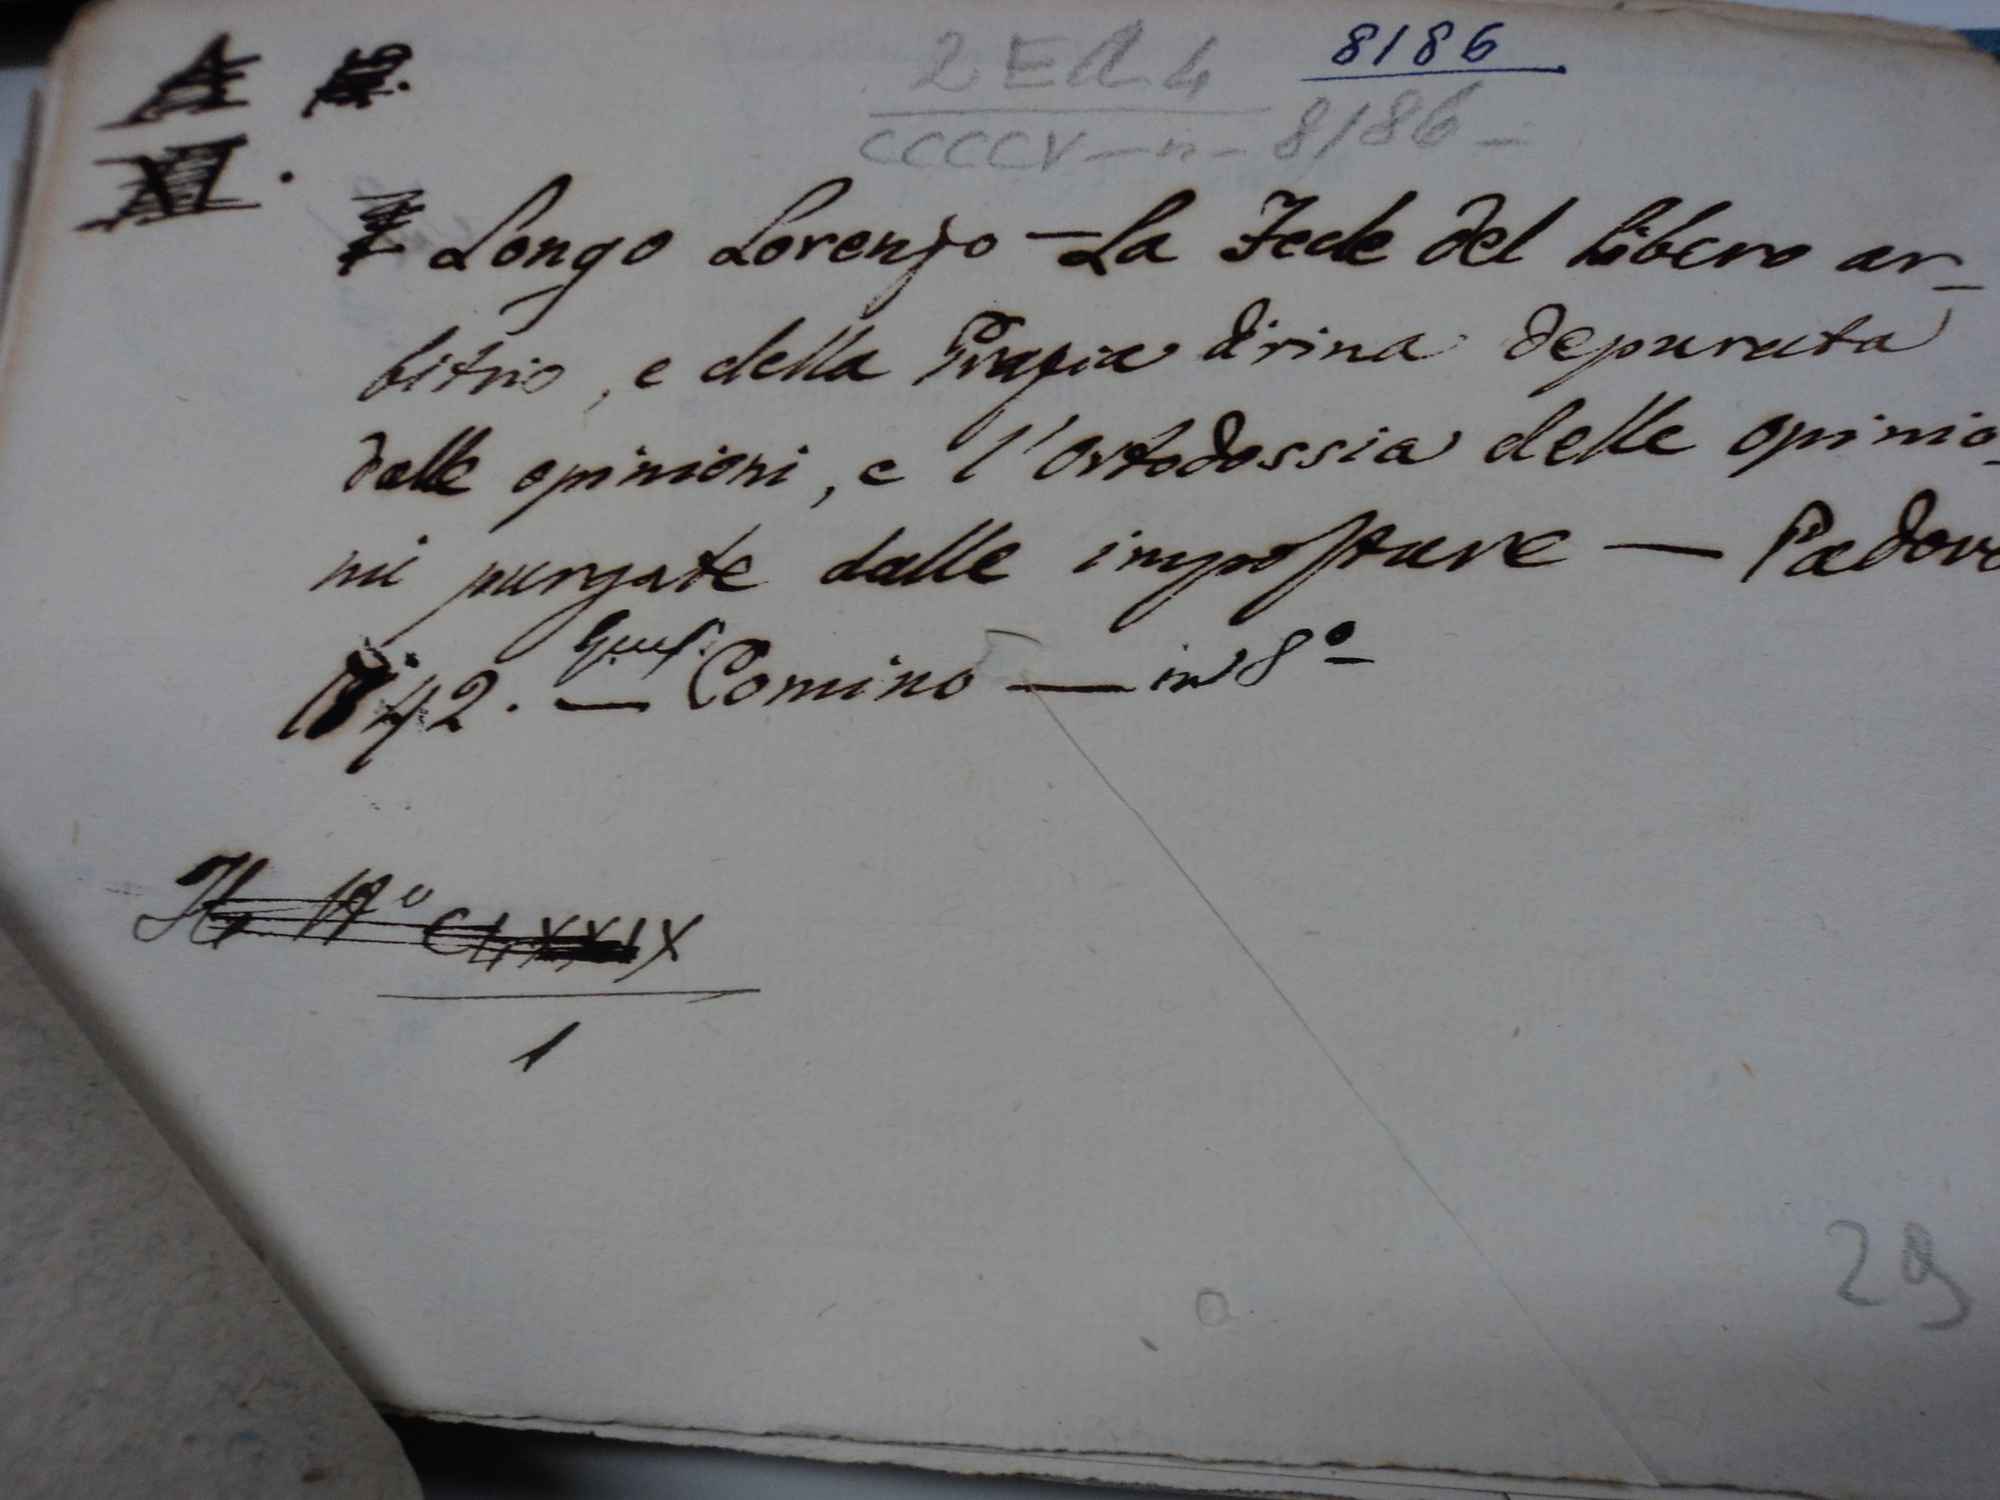 8186
2 E A 4
CCCCV — n — 8186 —
A
XI .
Longo Lorenzo — La Fede del libero ar-
bitrio, e della Grazia divina depurata
dalle opinioni, e l'ortodossia delle opinio-
ni purgate dalle imposture — Padova
1742 . — Comino — in 8º
Nº CLXXXIX
1
29